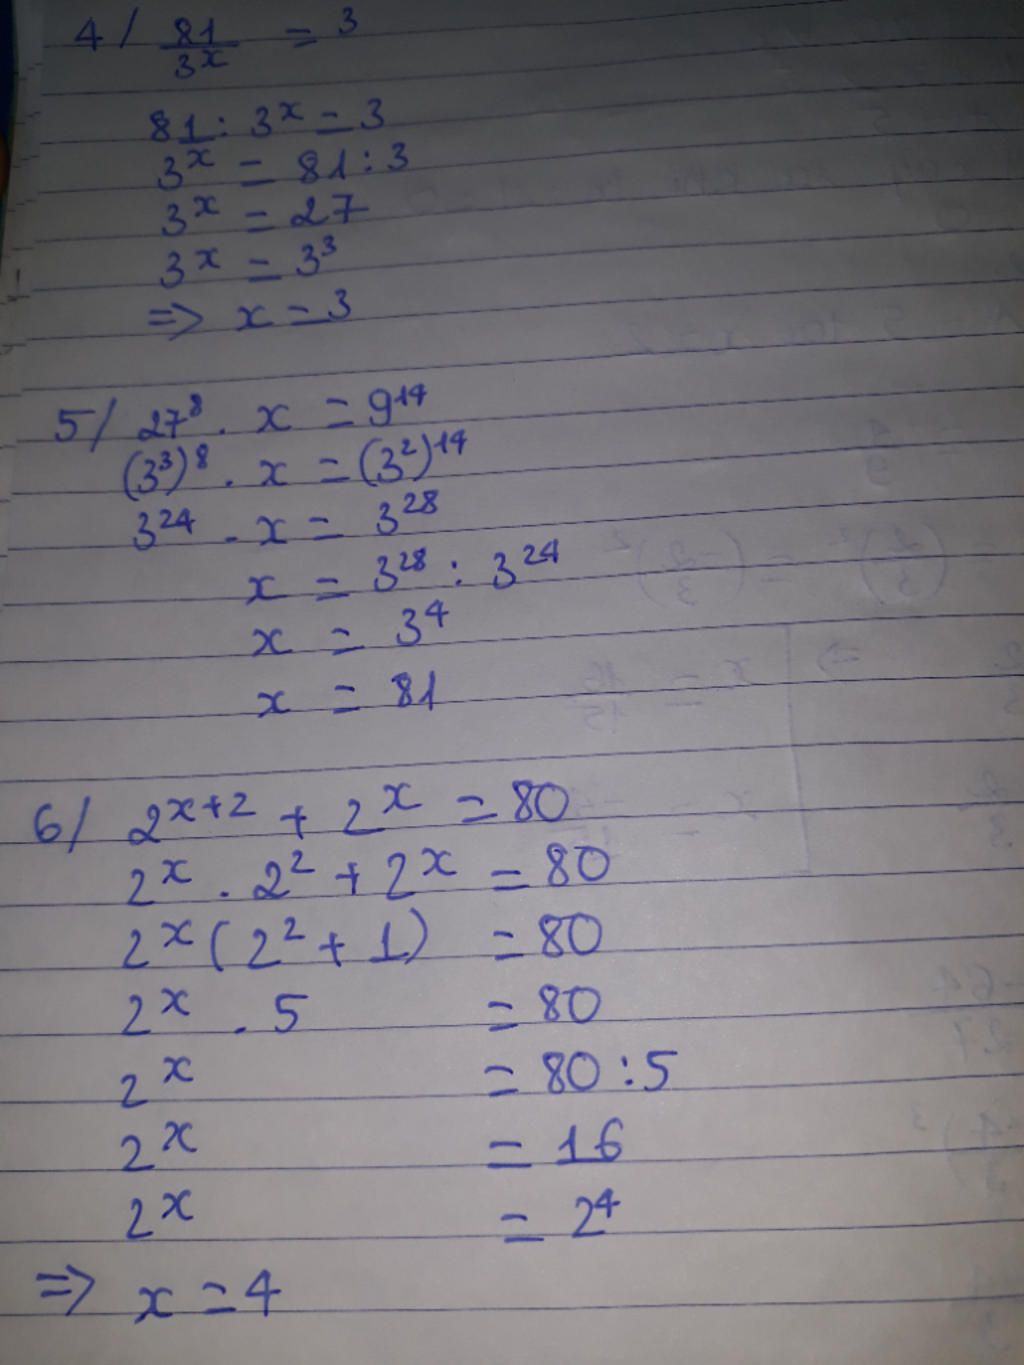 4/ 81/3^x = 3
81 : 3^x = 3
3^x = 81 : 3
3^x = 27
3^x = 3^3
=> x = 3
5/ 27^8 . x = 9^14
(3^3)^8 . x = (3^2)^14
3^24 . x = 3^28
x = 3^28 : 3^24
x = 3^4
x = 81
6/ 2^x+2 + 2^x = 80
2^x . 2^2 + 2^x = 80
2^x (2^2 + 1) = 80
2^x . 5 = 80
2^x = 80 : 5
2^x = 16
2^x = 2^4
=> x = 4